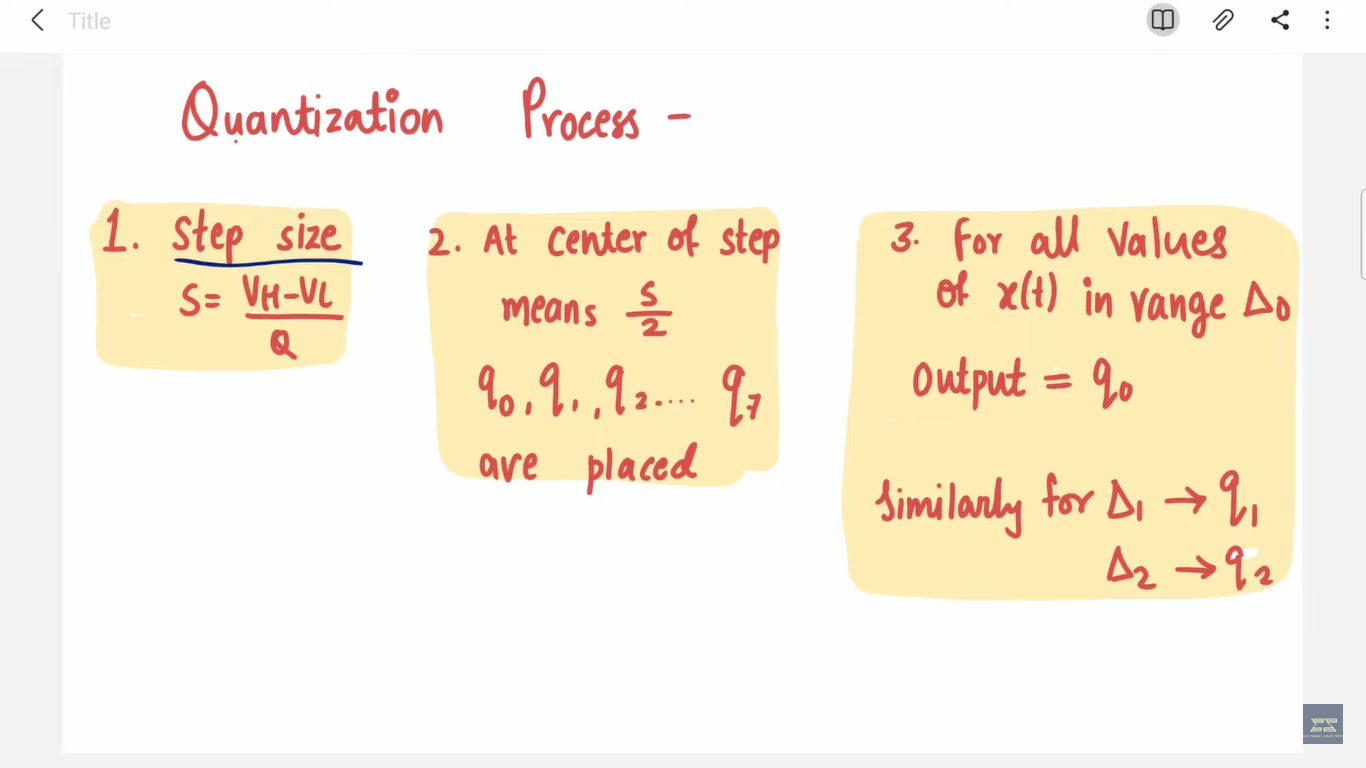 Title
Quantization Process -
1. Step size
S= VH-VL
Q
2. At center of step
means S/2
q0, q1, q2.... q7
are placed
3. For all values
of x(t) in range Δ0
Output = q0
Similarly for Δ1 → q1
Δ2 → q2